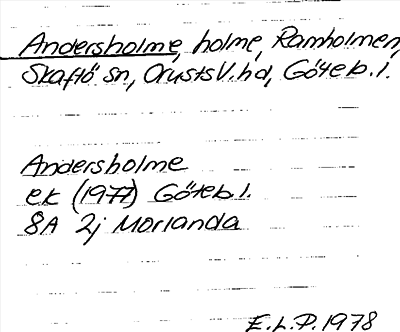 Andersholme, holme, Ramholmen,
Skaftö sn, Orusts V. hd, Göteb. l.
Andersholme
ek (1977) Göteb. l.
8A 2j Morlanda
E.L.P. 1978